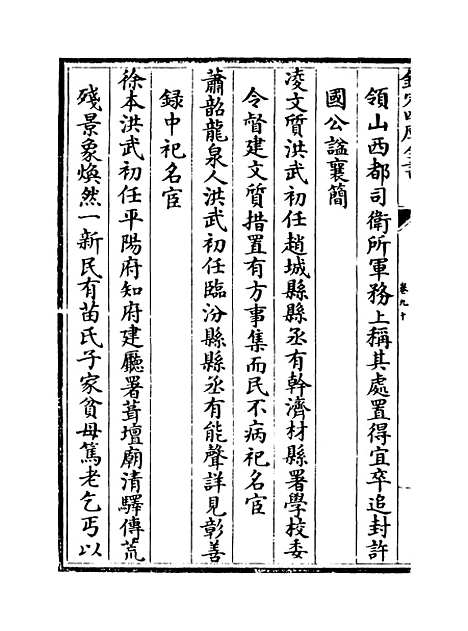 欽定四庫全書
卷九十
領山西都司衛所軍務上稱其處置得宜卒追封許
國公諡襄簡
凌文質洪武初任趙城縣縣丞有幹濟材縣署學校委
令督建文質措置有方事集而民不病祀名宦
蕭韶龍泉人洪武初任臨汾縣縣丞有能聲詳見彰善
録中祀名宦
徐本洪武初任平陽府知府建廳署葺壇廟清驛傳荒
殘景象煥然一新民有苗氏子家貧母篤老乞丐以